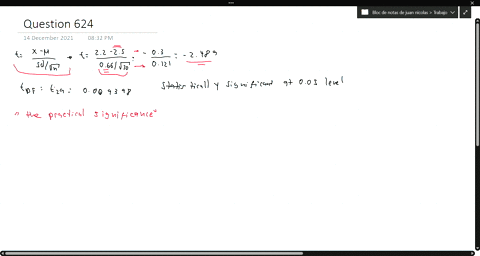 Bloc de notas de juan nicolas > Trabajo
Question 624
14 December 2021 08:32 PM
t= X-M / Sd/√n → t= 2.2-2.5 / 0.66/√30 = -0.3 / 0.121 = -2.489
t DF = t 29 = 0.009398 Statistically significant at 0.05 level
"the practical significance"